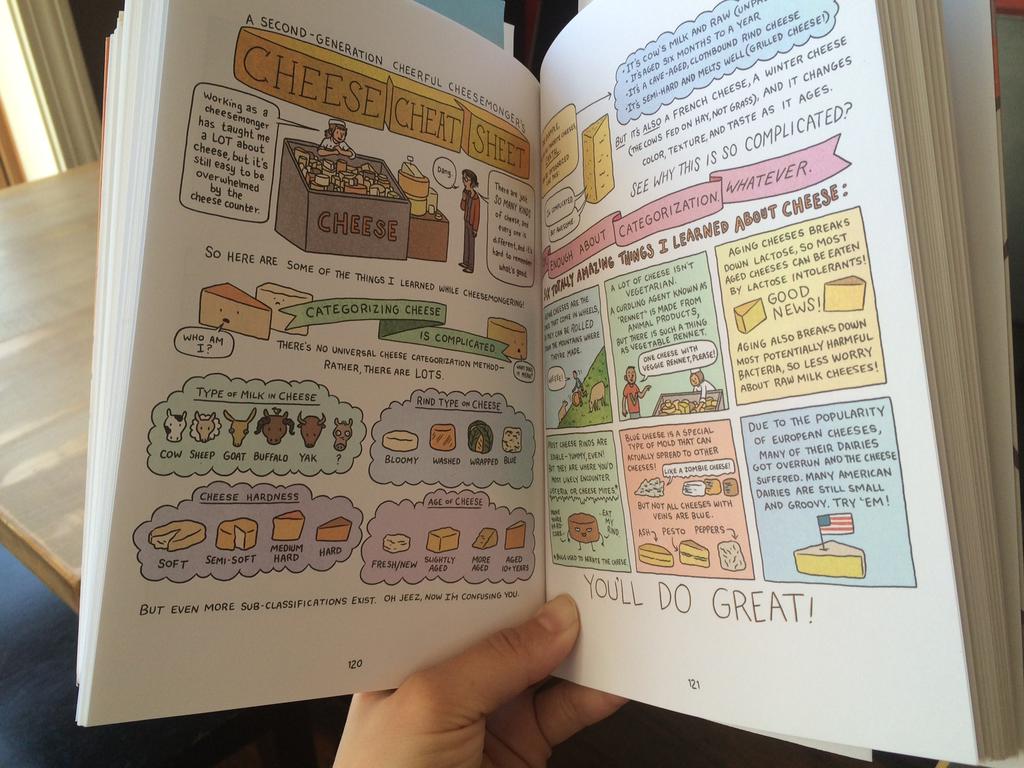 A SECOND-GENERATION CHEERFUL CHEESEMONGER'S
CHEESE CHEAT SHEET
Working as a
cheesemonger
has taught me
a LOT about
cheese, but it's
still easy to be
overwhelmed
by the
cheese counter.
CHEESE
Dang.
There are just
SO MANY KINDS
of cheese, and
every one is
different, and it's
hard to remember
what's good.
SO HERE ARE SOME OF THE THINGS I LEARNED WHILE CHEESEMONGERING!
CATEGORIZING CHEESE
IS COMPLICATED
WHO AM
I?
THERE'S NO UNIVERSAL CHEESE CATEGORIZATION METHOD—
RATHER, THERE ARE LOTS.
TYPE OF MILK IN CHEESE
COW SHEEP GOAT BUFFALO YAK ?
RIND TYPE ON CHEESE
BLOOMY WASHED WRAPPED BLUE
CHEESE HARDNESS
SOFT SEMI-SOFT MEDIUM HARD HARD
AGE OF CHEESE
FRESH/NEW SLIGHTLY AGED MORE AGED AGED 10+ YEARS
BUT EVEN MORE SUB-CLASSIFICATIONS EXIST. OH JEEZ, NOW I'M CONFUSING YOU.
120
· IT'S COW'S MILK AND RAW
· IT'S AGED SIX MONTHS TO A YEAR
· IT'S A CAVE-AGED, CLOTHBOUND RIND CHEESE
· IT'S SEMI-HARD AND MELTS WELL (GRILLED CHEESE!)
BUT IT'S ALSO A FRENCH CHEESE, A WINTER CHEESE
(THE COWS FED ON HAY, NOT GRASS), AND IT CHANGES
COLOR, TEXTURE, AND TASTE AS IT AGES.
SEE WHY THIS IS SO COMPLICATED?
ENOUGH ABOUT CATEGORIZATION. WHATEVER.
TOTALLY AMAZING THINGS I LEARNED ABOUT CHEESE:
CHEESES ARE THE
THAT COME IN WHEELS,
THEY CAN BE ROLLED
DOWN THE MOUNTAINS WHERE
THEY'RE MADE.
A LOT OF CHEESE ISN'T
VEGETARIAN.
A CURDLING AGENT KNOWN AS
"RENNET" IS MADE FROM
ANIMAL PRODUCTS,
BUT THERE IS SUCH A THING
AS VEGETABLE RENNET.
ONE CHEESE WITH
VEGGIE RENNET, PLEASE!
AGING CHEESES BREAKS
DOWN LACTOSE, SO MOST
AGED CHEESES CAN BE EATEN
BY LACTOSE INTOLERANTS!
GOOD
NEWS!
AGING ALSO BREAKS DOWN
MOST POTENTIALLY HARMFUL
BACTERIA, SO LESS WORRY
ABOUT RAW MILK CHEESES!
MOST CHEESE RINDS ARE
EDIBLE—YUMMY, EVEN!
BUT THEY ARE WHERE YOU'D
MOST LIKELY ENCOUNTER
LISTERIA OR CHEESE MITES*.
EAT
MY
RIND.
* BUGS USED TO AERATE THE CHEESE
BLUE CHEESE IS A SPECIAL
TYPE OF MOLD THAT CAN
ACTUALLY SPREAD TO OTHER
CHEESES!
LIKE A ZOMBIE CHEESE!
BUT NOT ALL CHEESES WITH
VEINS ARE BLUE.
ASH PESTO PEPPERS
DUE TO THE POPULARITY
OF EUROPEAN CHEESES,
MANY OF THEIR DAIRIES
GOT OVERRUN AND THE CHEESE
SUFFERED. MANY AMERICAN
DAIRIES ARE STILL SMALL
AND GROOVY. TRY 'EM!
YOU'LL DO GREAT!
121